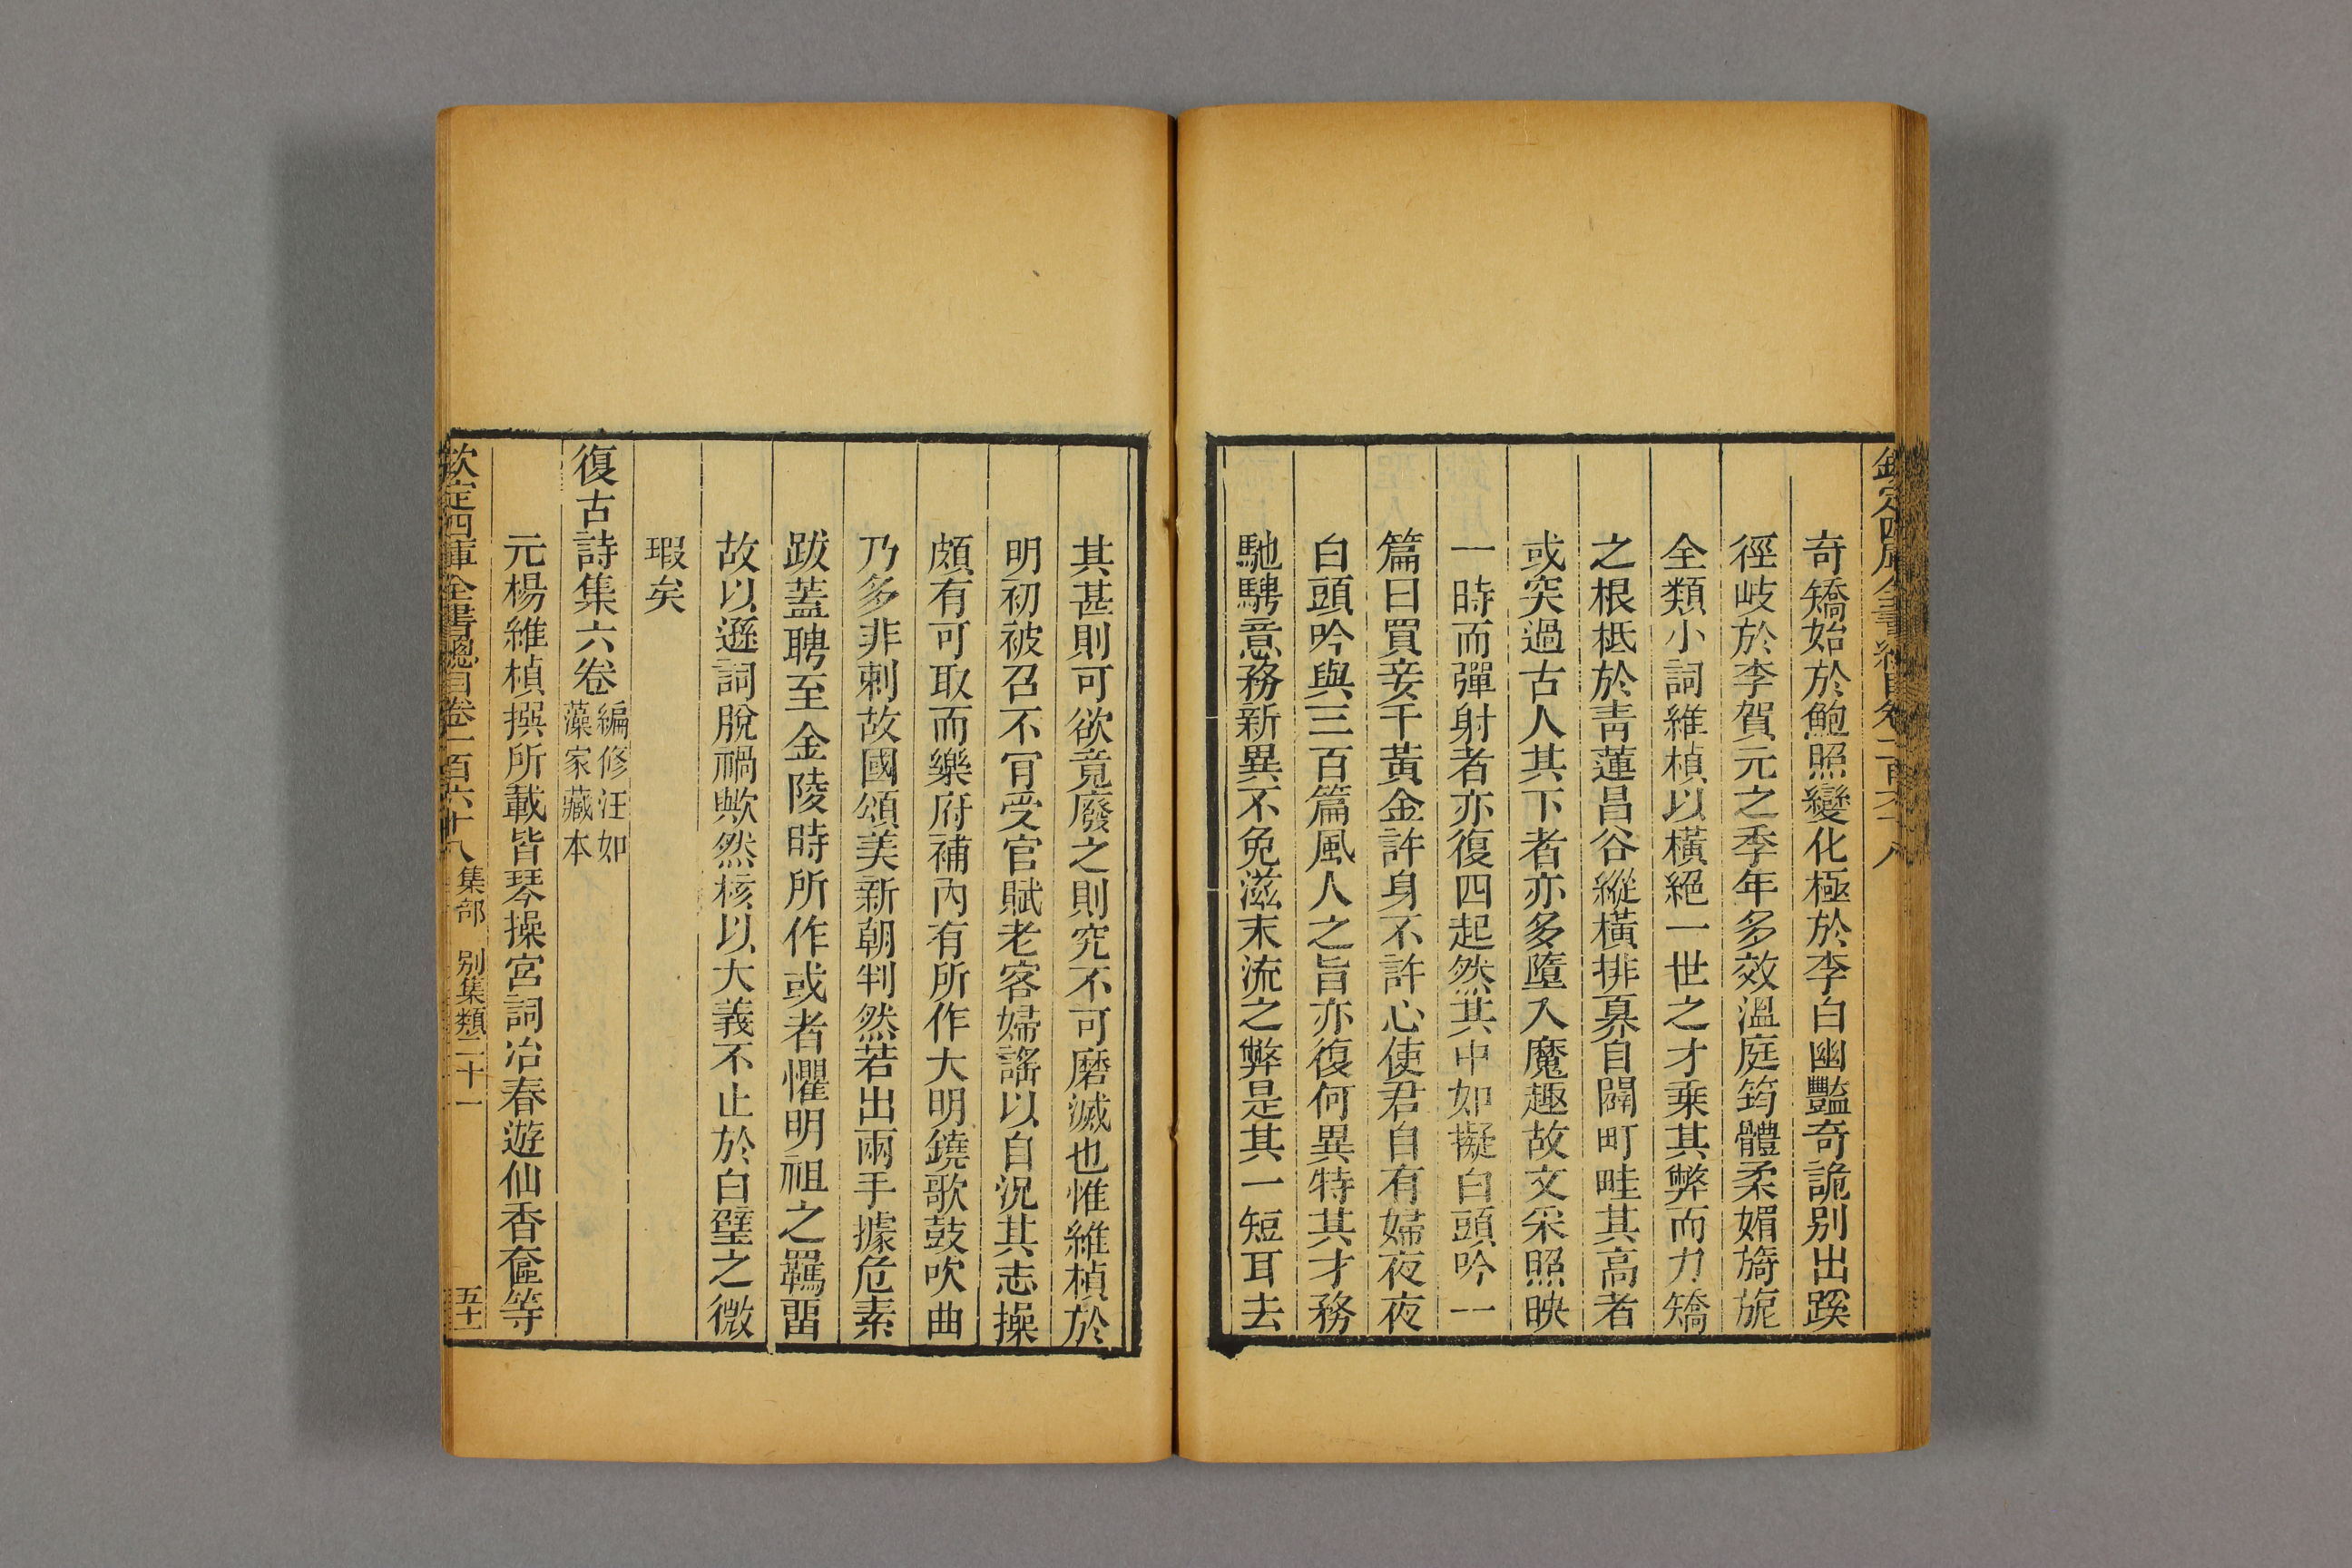 欽定四庫全書總目卷一百六十八
奇矯始於鮑照變化極於李白幽豔奇詭别出蹊
徑岐於李賀元之季年多效溫庭筠體柔媚旖旎
全類小詞維楨以橫絕一世之才乗其弊而力矯
之根柢於靑蓮昌谷縱橫排奡自闢町畦其高者
或突過古人其下者亦多墮入魔趣故文采照映
一時而彈射者亦復四起然其中如擬白頭吟一
篇曰買妾千黃金許身不許心使君自有婦夜夜
白頭吟與三百篇風人之旨亦復何異特其才務
馳騁意務新異不免滋末流之弊是其一短耳去
其甚則可欲竟廢之則究不可磨滅也惟維楨於
明初被召不肎受官賦老客婦謠以自況其志操
頗有可取而樂府補內有所作大明鐃歌鼓吹曲
乃多非刺故國頌美新朝判然若出兩手據危素
跋蓋聘至金陵時所作或者懼明祖之羈畱
故以遜詞脫禍歟然核以大義不止於白璧之微
瑕矣
復古詩集六卷 編修汪如
藻家藏本
元楊維楨撰所載皆琴操宮詞冶春遊仙香奩等
欽定四庫全書總目卷一百六十八 集部 别集類二十一 五十一